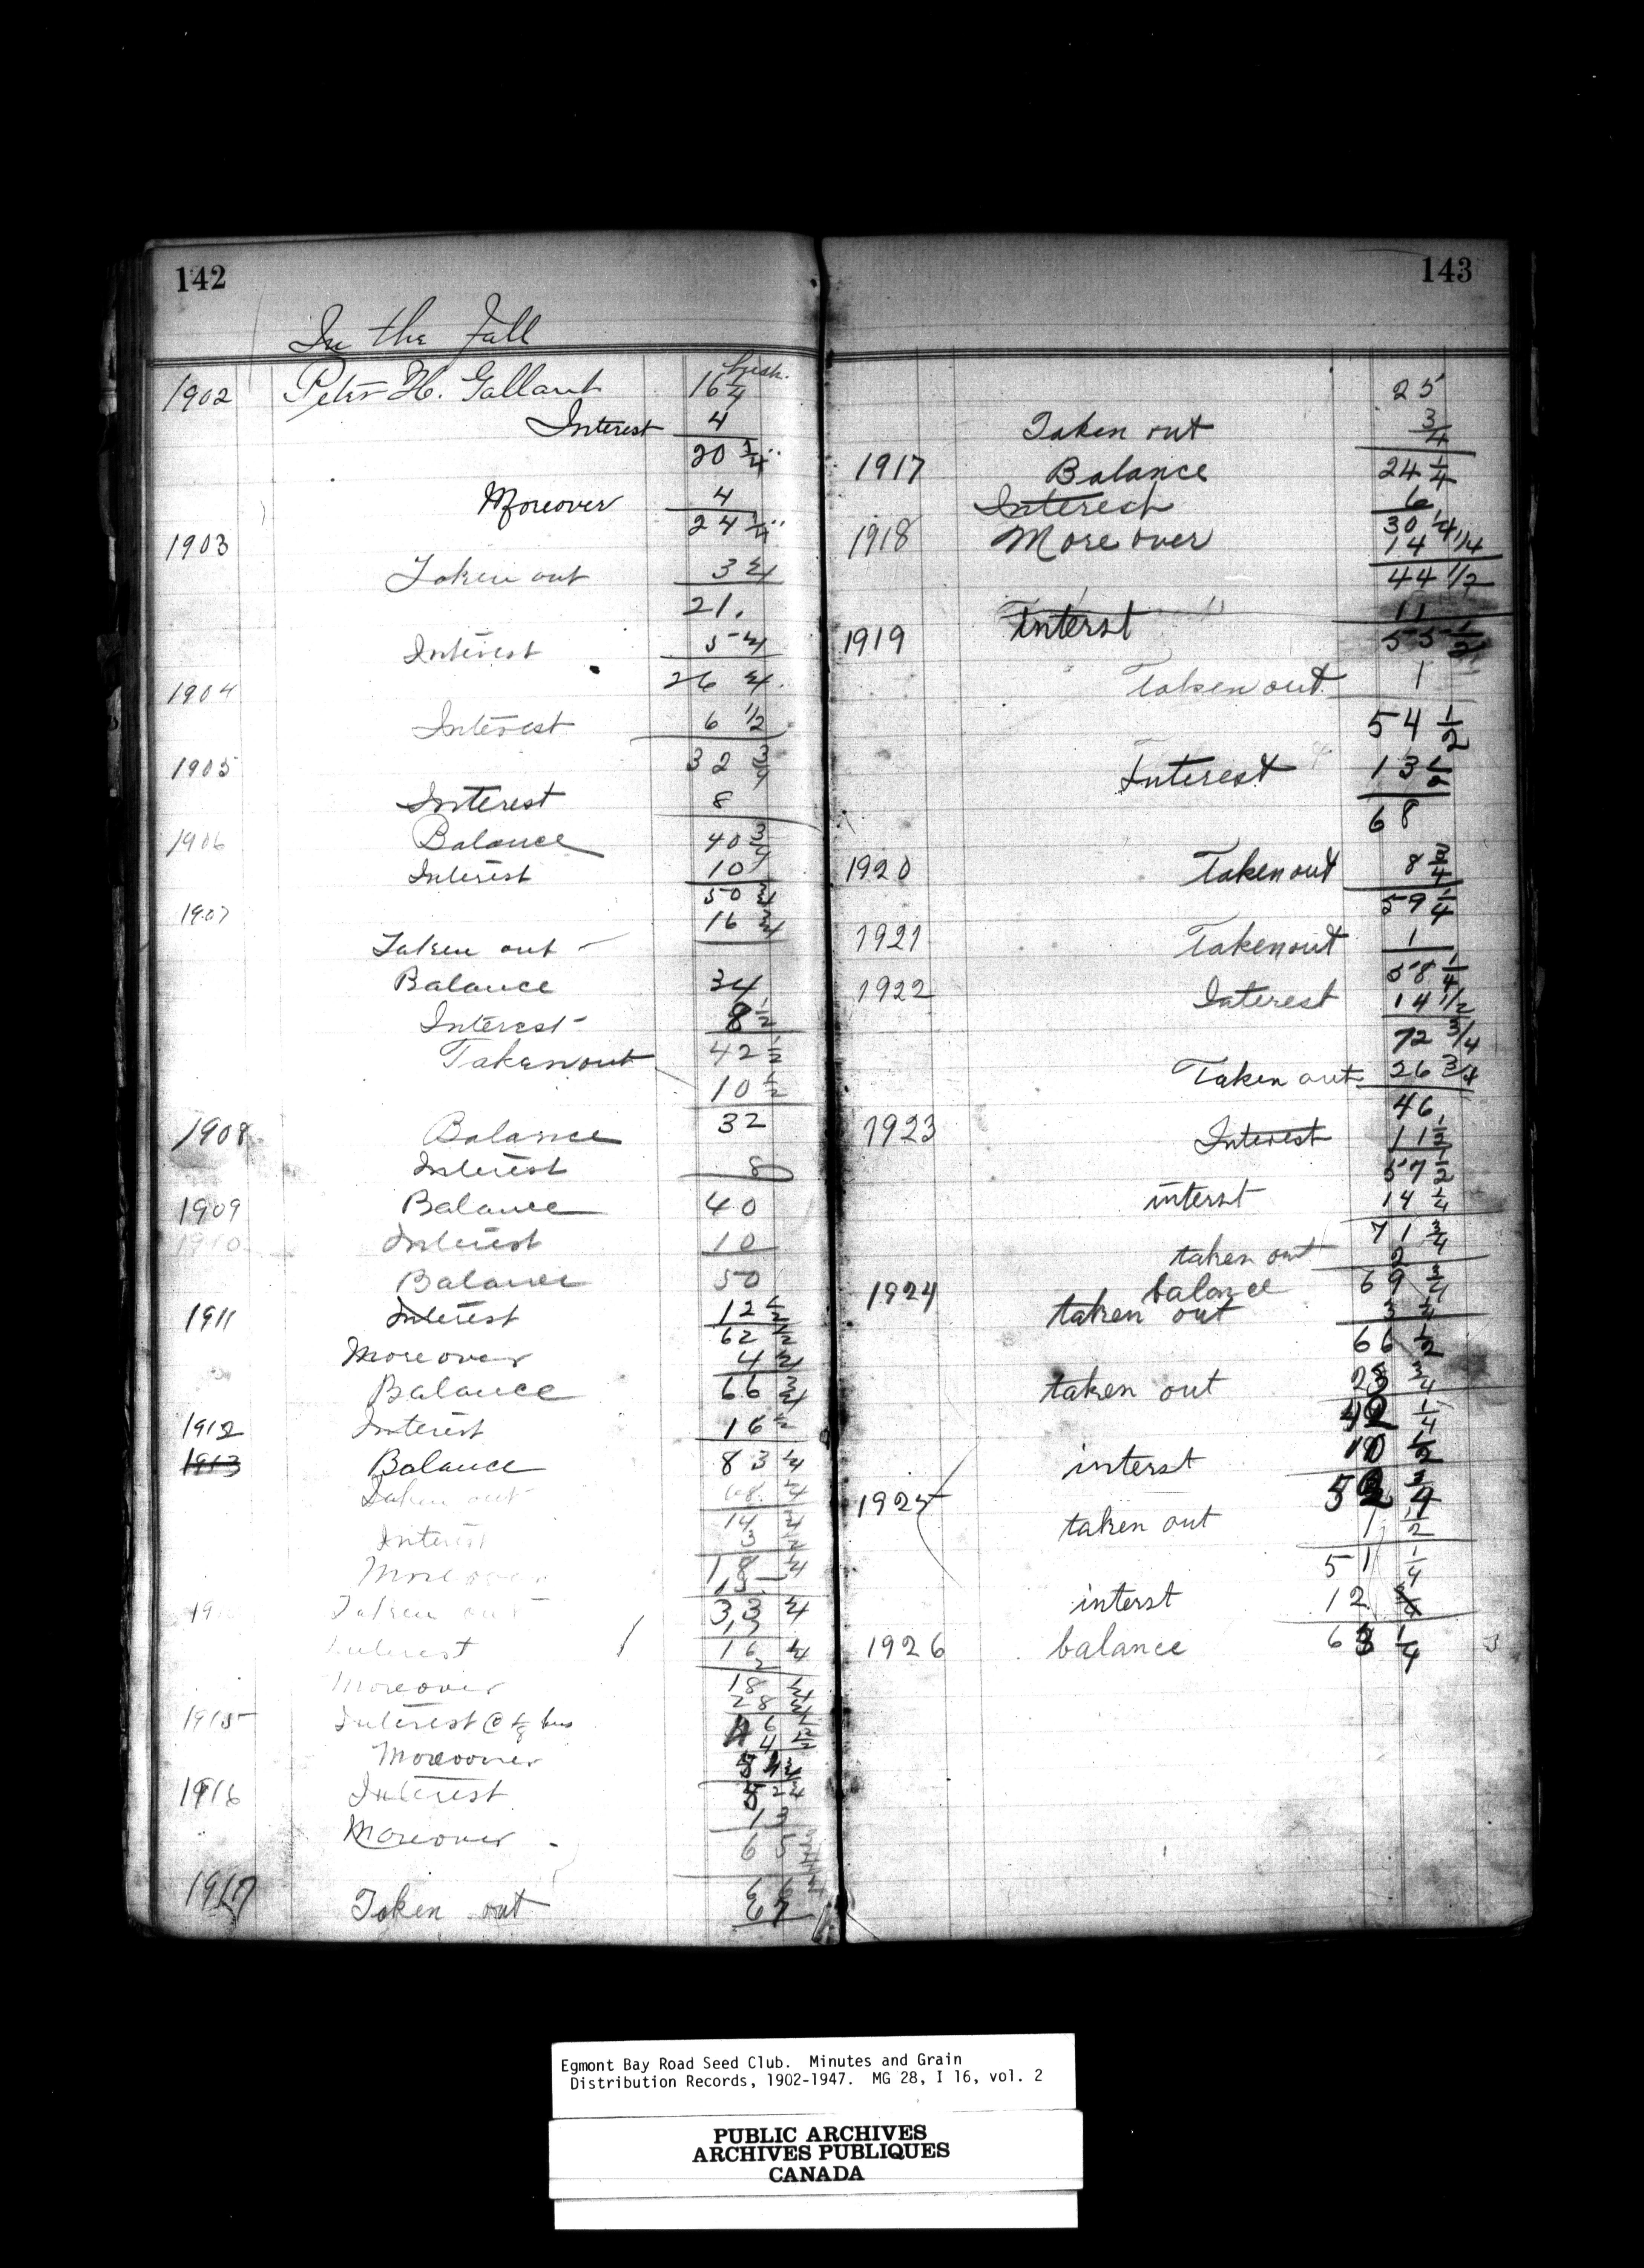 142
In the Fall
bush.
1902 Peter H. Gallant 16 1/4
Interest 4
20 1/4
Moreover 4
24 1/4
1903
Taken out 3 1/4
21.
Interest 5 1/4
26 1/4
1904
Interest 6 1/2
32 3/4
1905
Interest 8
1906 Balance 40 3/4
Interest 10
50 3/4
1907 16 3/4
Taken out -
Balance 34
Interest - 8 1/2
Takenout 42 1/2
10 1/2
1908 Balance 32
Interest 8
1909 Balance 40
1910 Interest 10
Balance 50
1911 Interest 12 1/2
62 1/2
Moreover 4 1/4
Balance 66 3/4
1912 Interest 16 1/2
1913 Balance 83 1/4
Taken out 68
14
Interest 3
Moreover 18 1/4
15
Taken out 33 1/4
17
Interest 16 1/4
2
Moreover 18 1/4
28
1915 Interest @ 1/4 bus 46
4 1/2
Moreover
1916 Interest 52 3/4
13
Moreover - 65 3/4
1917
Taken out
143
25
Taken out 3/4
1917 Balance 24 1/4
Interest 6
30 1/4
1918 More over 14 1/4
44 1/2
11
1919 interst 55 1/2
Taken out 1
54 1/2
Interest 13 1/2
68
1920 Taken out 8 3/4
59 1/4
1921 Takenout 1
58 1/4
1922 Interest 14 1/2
72 3/4
Taken out 26 3/4
46
1923 Interest 11 1/2
57 1/2
interst 14 1/4
71 3/4
taken out 2
1924 balance 69 3/4
taken out 3 1/4
66 1/2
taken out 28 3/4
42 1/4
interst 10 1/2
1925 52 3/4
taken out 1 1/2
51 1/4
interst 12
1926 balance 63 1/4 3
Egmont Bay Road Seed Club. Minutes and Grain
Distribution Records, 1902-1947. MG 28, I 16, vol. 2
PUBLIC ARCHIVES
ARCHIVES PUBLIQUES
CANADA